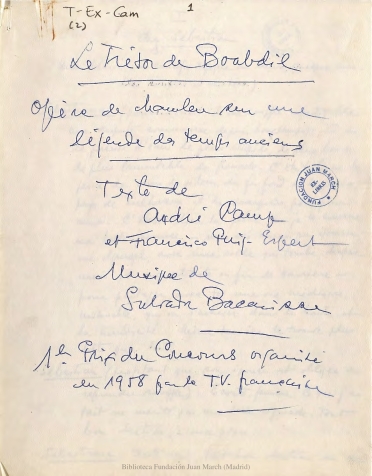 T-Ex-Cam
(2)
1
Le Trésor de Boabdil
Opéra de chambre sur une
légende des temps anciens
Texte de
André Camp
et Francisco Puig-Espert
Musique de
Salvador Bacarisse
1er Prix du Concours organisé
en 1958 par la T.V. française
FUNDACION JUAN MARCH
Biblioteca Fundación Juan March (Madrid)